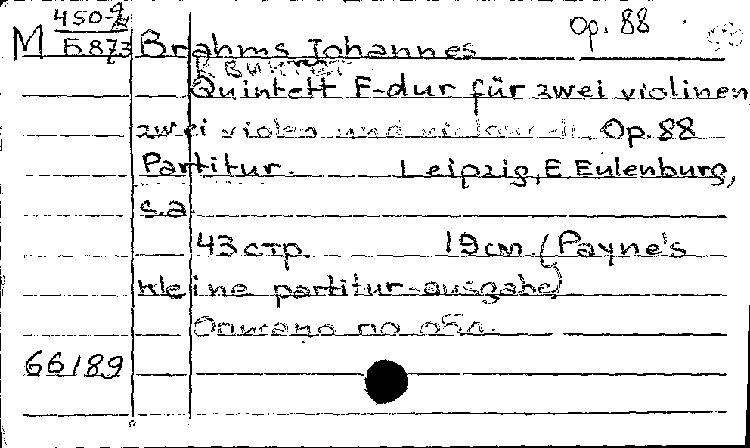 Op. 88
М 450-2
Б873 Brahms Johannes
Quintett F-dur für zwei violinen
zwei violen und violoncell. Op. 88
Partitur. Leipzig, E Eulenburg,
s.a
43 стр. 19 см (Payne's
kleine partitur-ausgabe)
Описано по обл.
66189